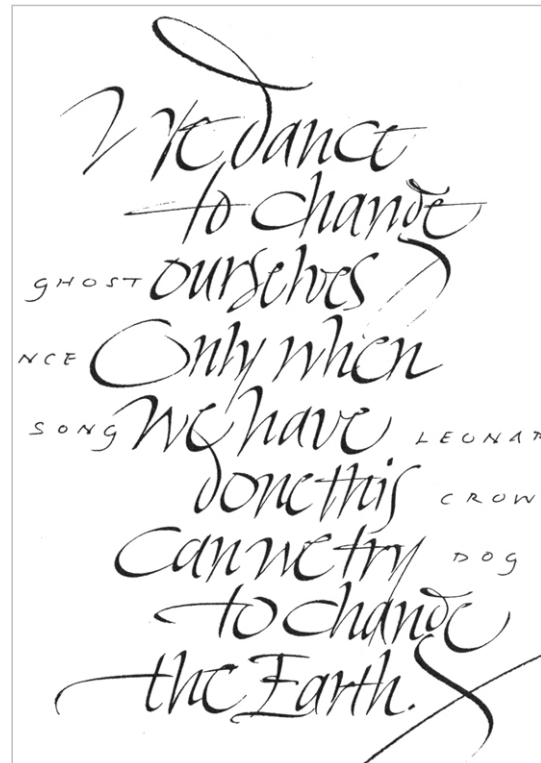 We dance
to change
GHOST ourselves
NCE Only when
SONG We have LEONAR
done this CROW
Can we try DOG
to change
the Earth.